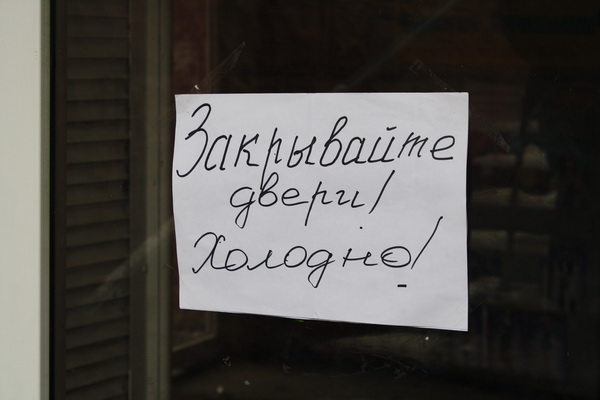 Закрывайте
двери!
Холодно!